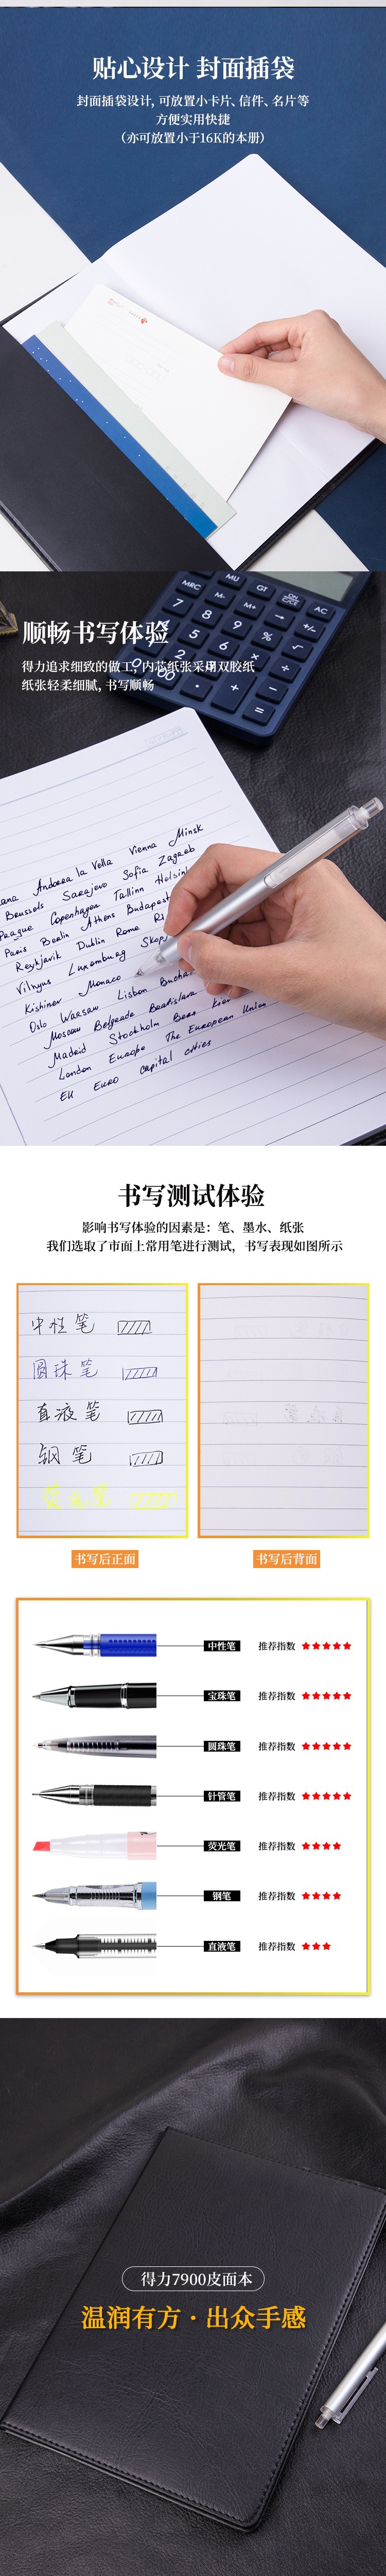 贴心设计 封面插袋
封面插袋设计, 可放置小卡片、信件、名片等
方便实用快捷
（亦可放置小于16K的本册）
MU
GT
MRC
M-
M+
→
ON
AC
7
8
9
%
+/-
顺畅书写体验
得力追求细致的做工, 内芯纸张采用双胶纸
纸张轻柔细腻, 书写顺畅
Andorra la Vella Vienna Minsk
Brussels Sarajevo Sofia Zagreb
Prague Copenhagen Tallinn Helsinki
Paris Berlin Athens Budapest
Reykjavik Dublin Rome Ri
Vilnyus Luxemburg Skop
Kishinev Monaco
Oslo Warsaw Lisbon Buchar
Moscow Belgrade Bratislava
Madrid Stockholm Bern Kiev
London Europe The European Union
EU Euro capital cities
书写测试体验
影响书写体验的因素是：笔、墨水、纸张
我们选取了市面上常用笔进行测试，书写表现如图所示
中性笔
圆珠笔
直液笔
钢笔
荧光笔
书写后正面
书写后背面
中性笔 推荐指数 ★★★★★
宝珠笔 推荐指数 ★★★★★
圆珠笔 推荐指数 ★★★★★
针管笔 推荐指数 ★★★★★
荧光笔 推荐指数 ★★★★
钢笔 推荐指数 ★★★★
直液笔 推荐指数 ★★★
得力7900皮面本
温润有方 · 出众手感